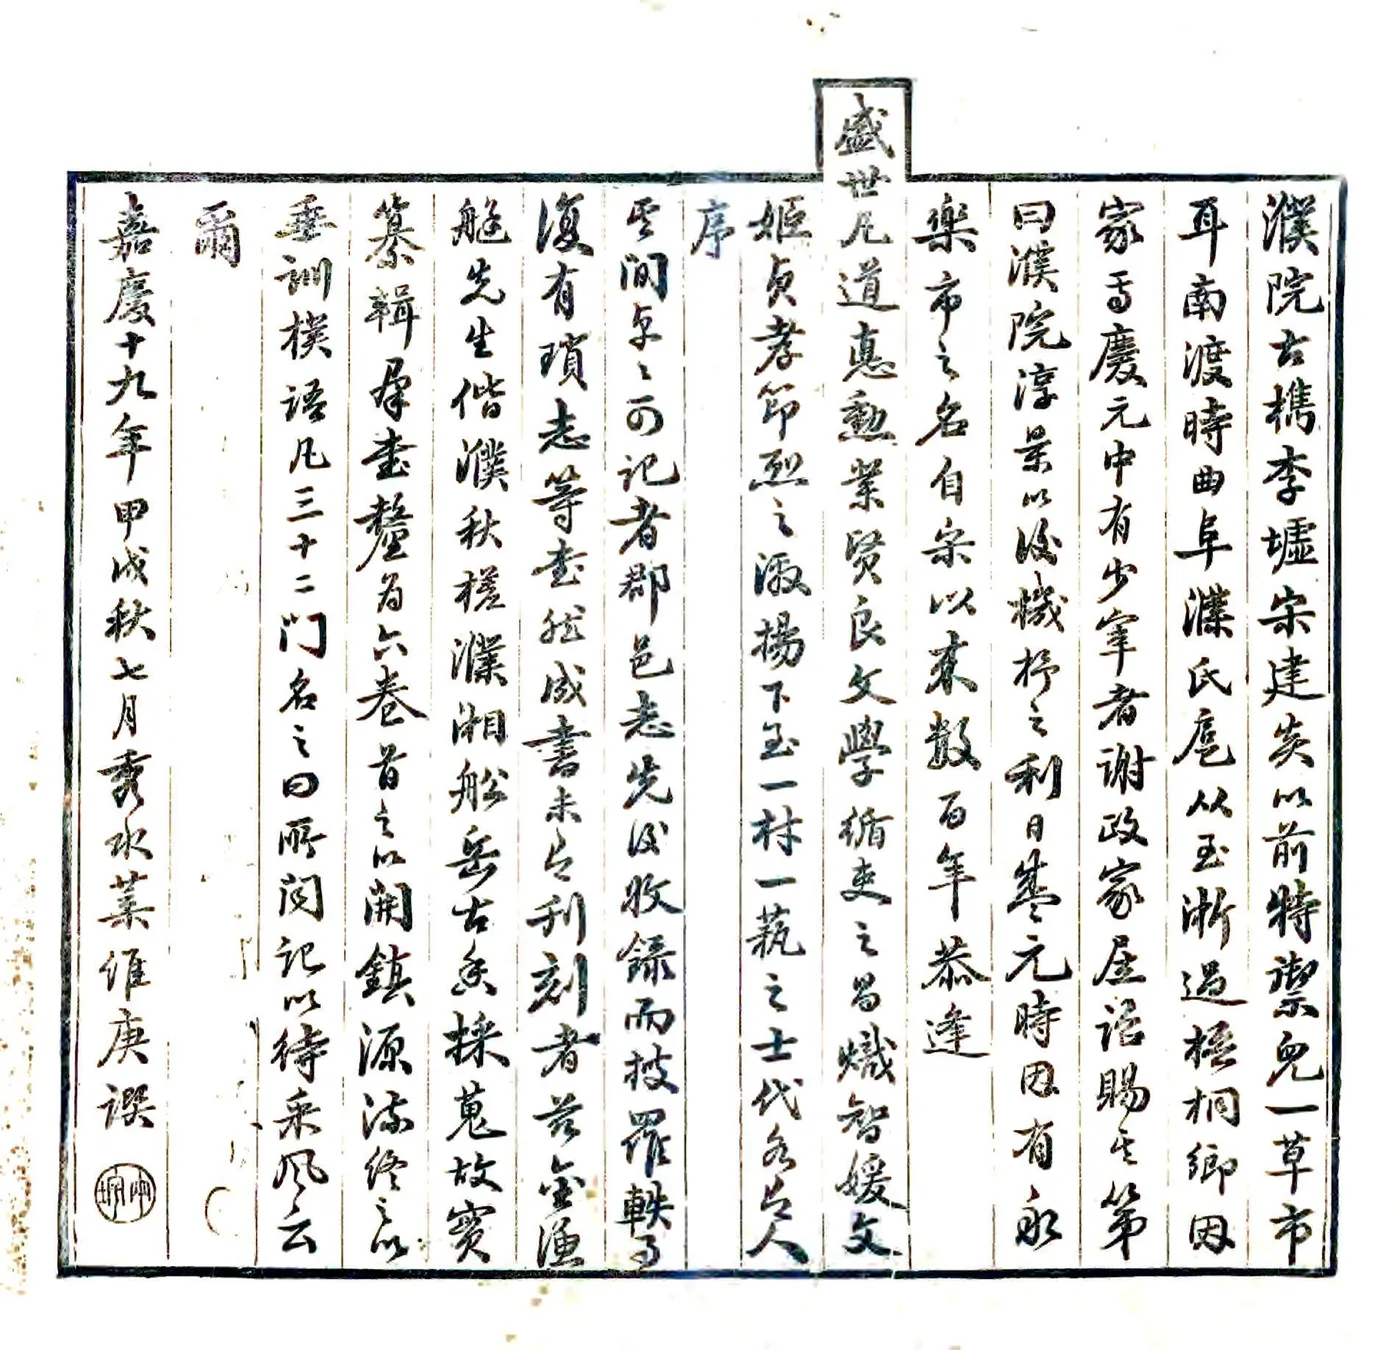 濮院古檇李墟宋建炎以前特禦兒一草市
耳南渡時曲阜濮氏扈从至浙過梧桐鄉因
家焉慶元中有少宰者謝政家居詔賜其第
曰濮院淳景以後機杼之利日盛元時因有永
樂市之名自宋以來數百年恭逢
盛世凡道悳勲業賢良文學循吏之昌熾智媛文
姬貞孝節烈之激揚下至一材一蓺之士代不乏人
序
其間卓之可記者郡邑志先後收録而披羅軼事
復有瑣志等書然成書未之刊刻者茲金漁
艇先生偕濮秋槎濮湘舩岳古香採蒐故實
纂輯羣書釐為六卷首之以開鎮源流終之以
垂訓樸語凡三十二門名之曰所聞記以待采風云
爾
嘉慶十九年甲戌秋七月秀水葉維庚譔